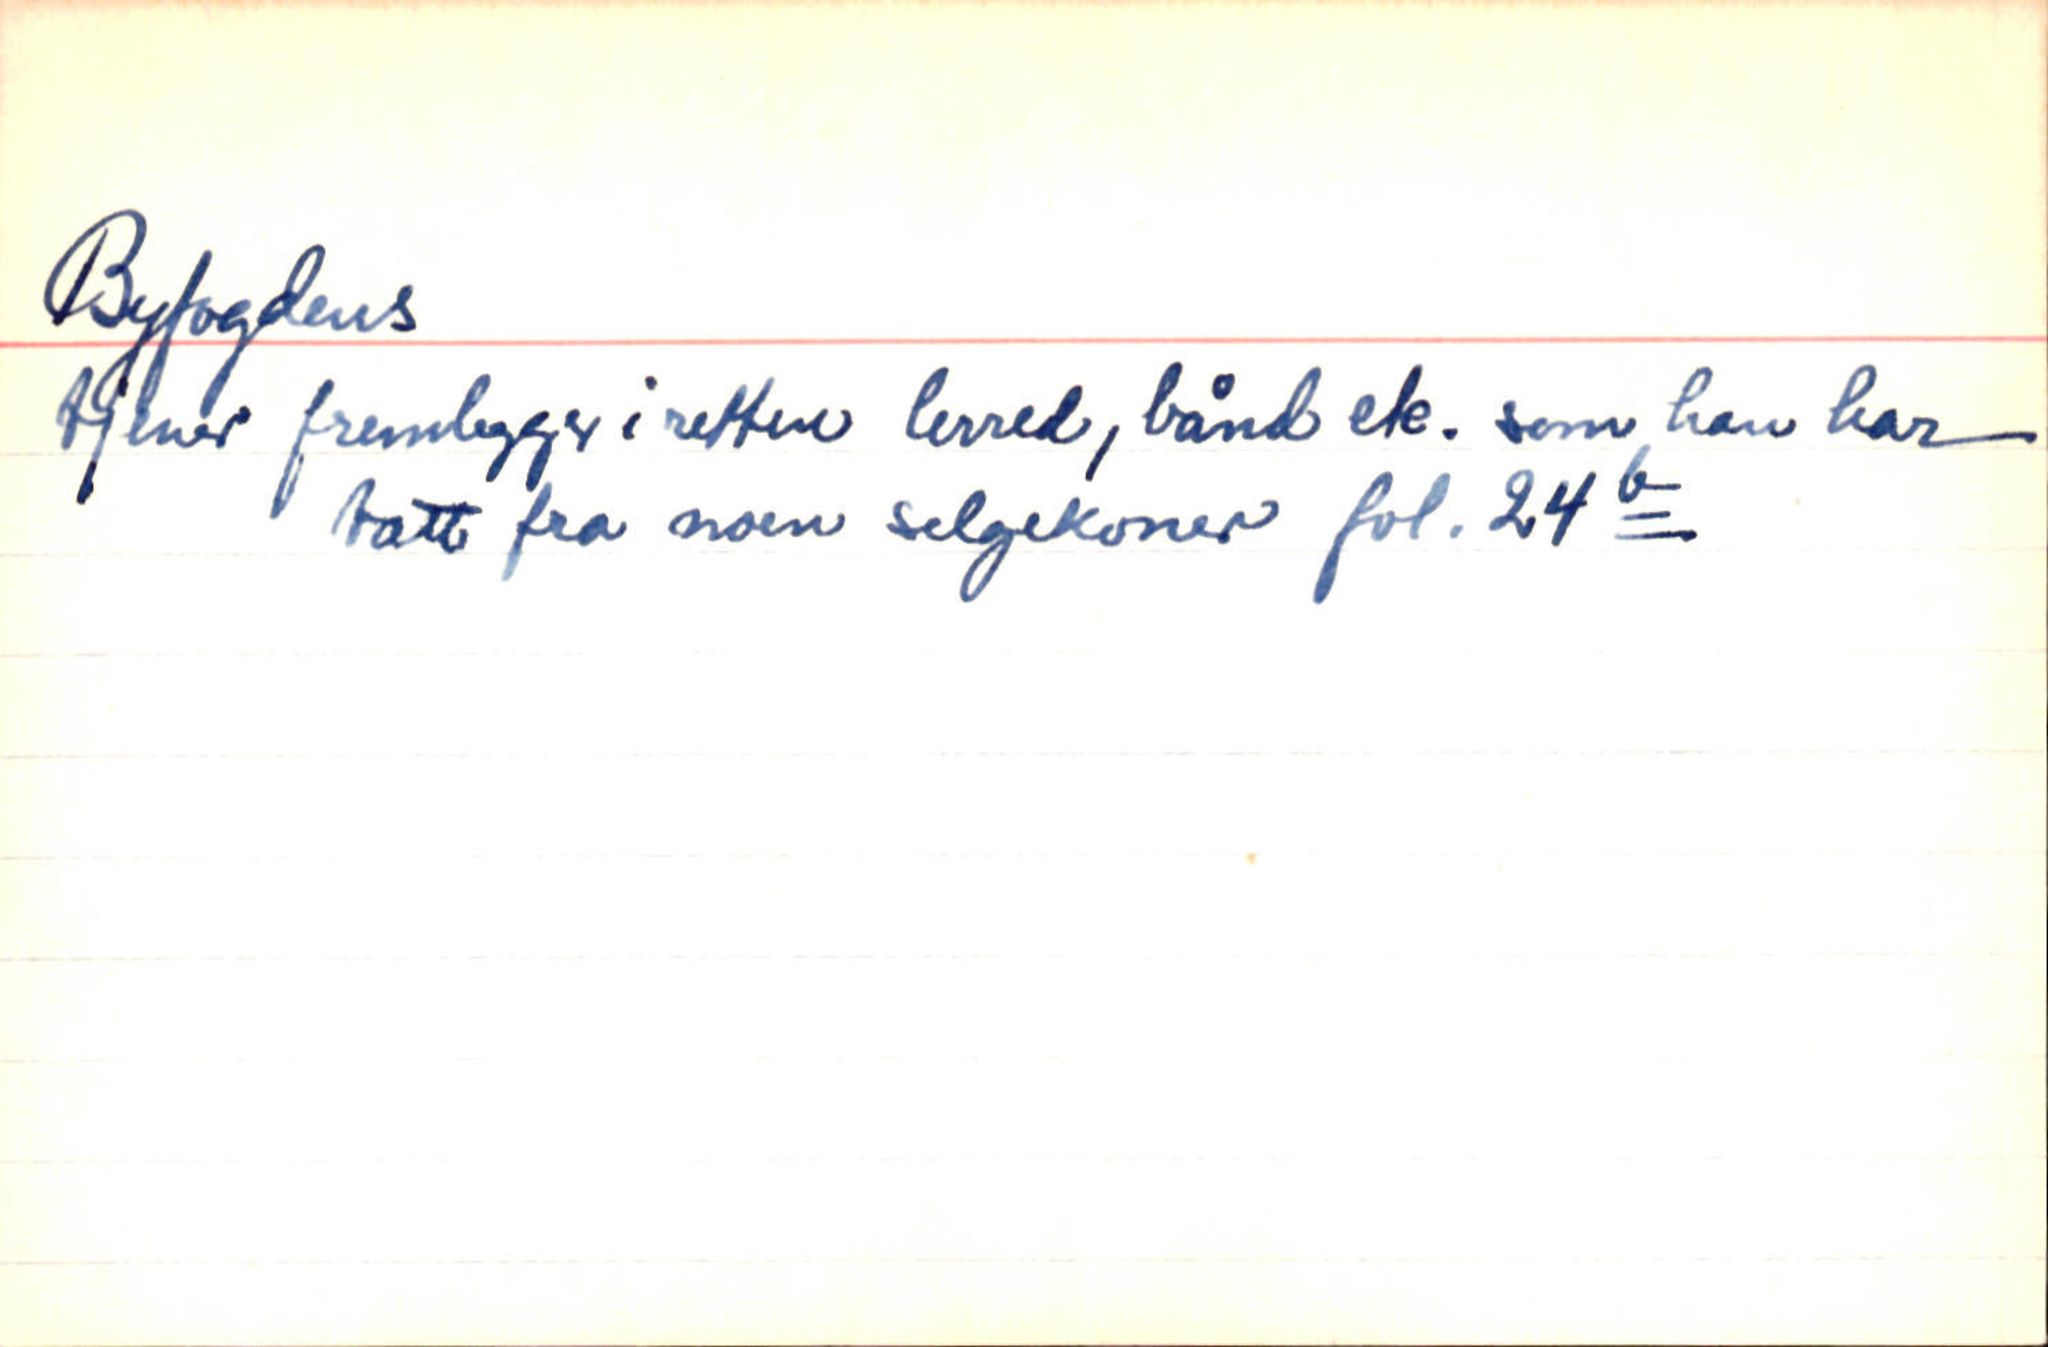 Byfogdens
tjener fremlegger i retten lerred, bånd etc. som han har
tatt fra noen selgekoner fol. 24 b